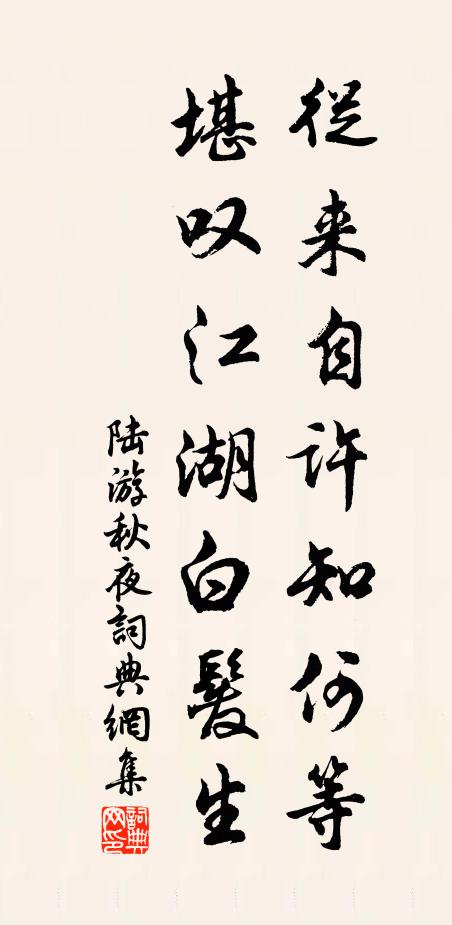 從来自许知何等
堪叹江湖白髮生
陆游秋夜詞典網集
詞典网印